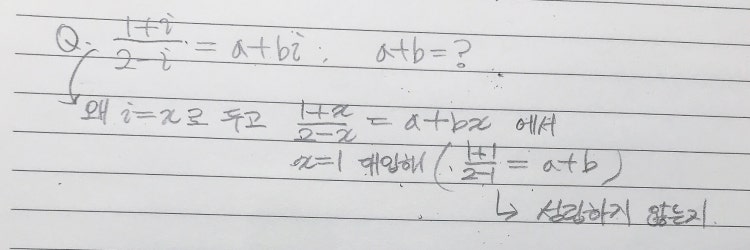 Q. (1+i)/(2-i) = a+bi, a+b=?
왜 i=x로 두고 (1+x)/(2-x) = a+bx 에서
x=1 대입해 ((1+1)/(2-1) = a+b)
↳ 성립하지 않는지.